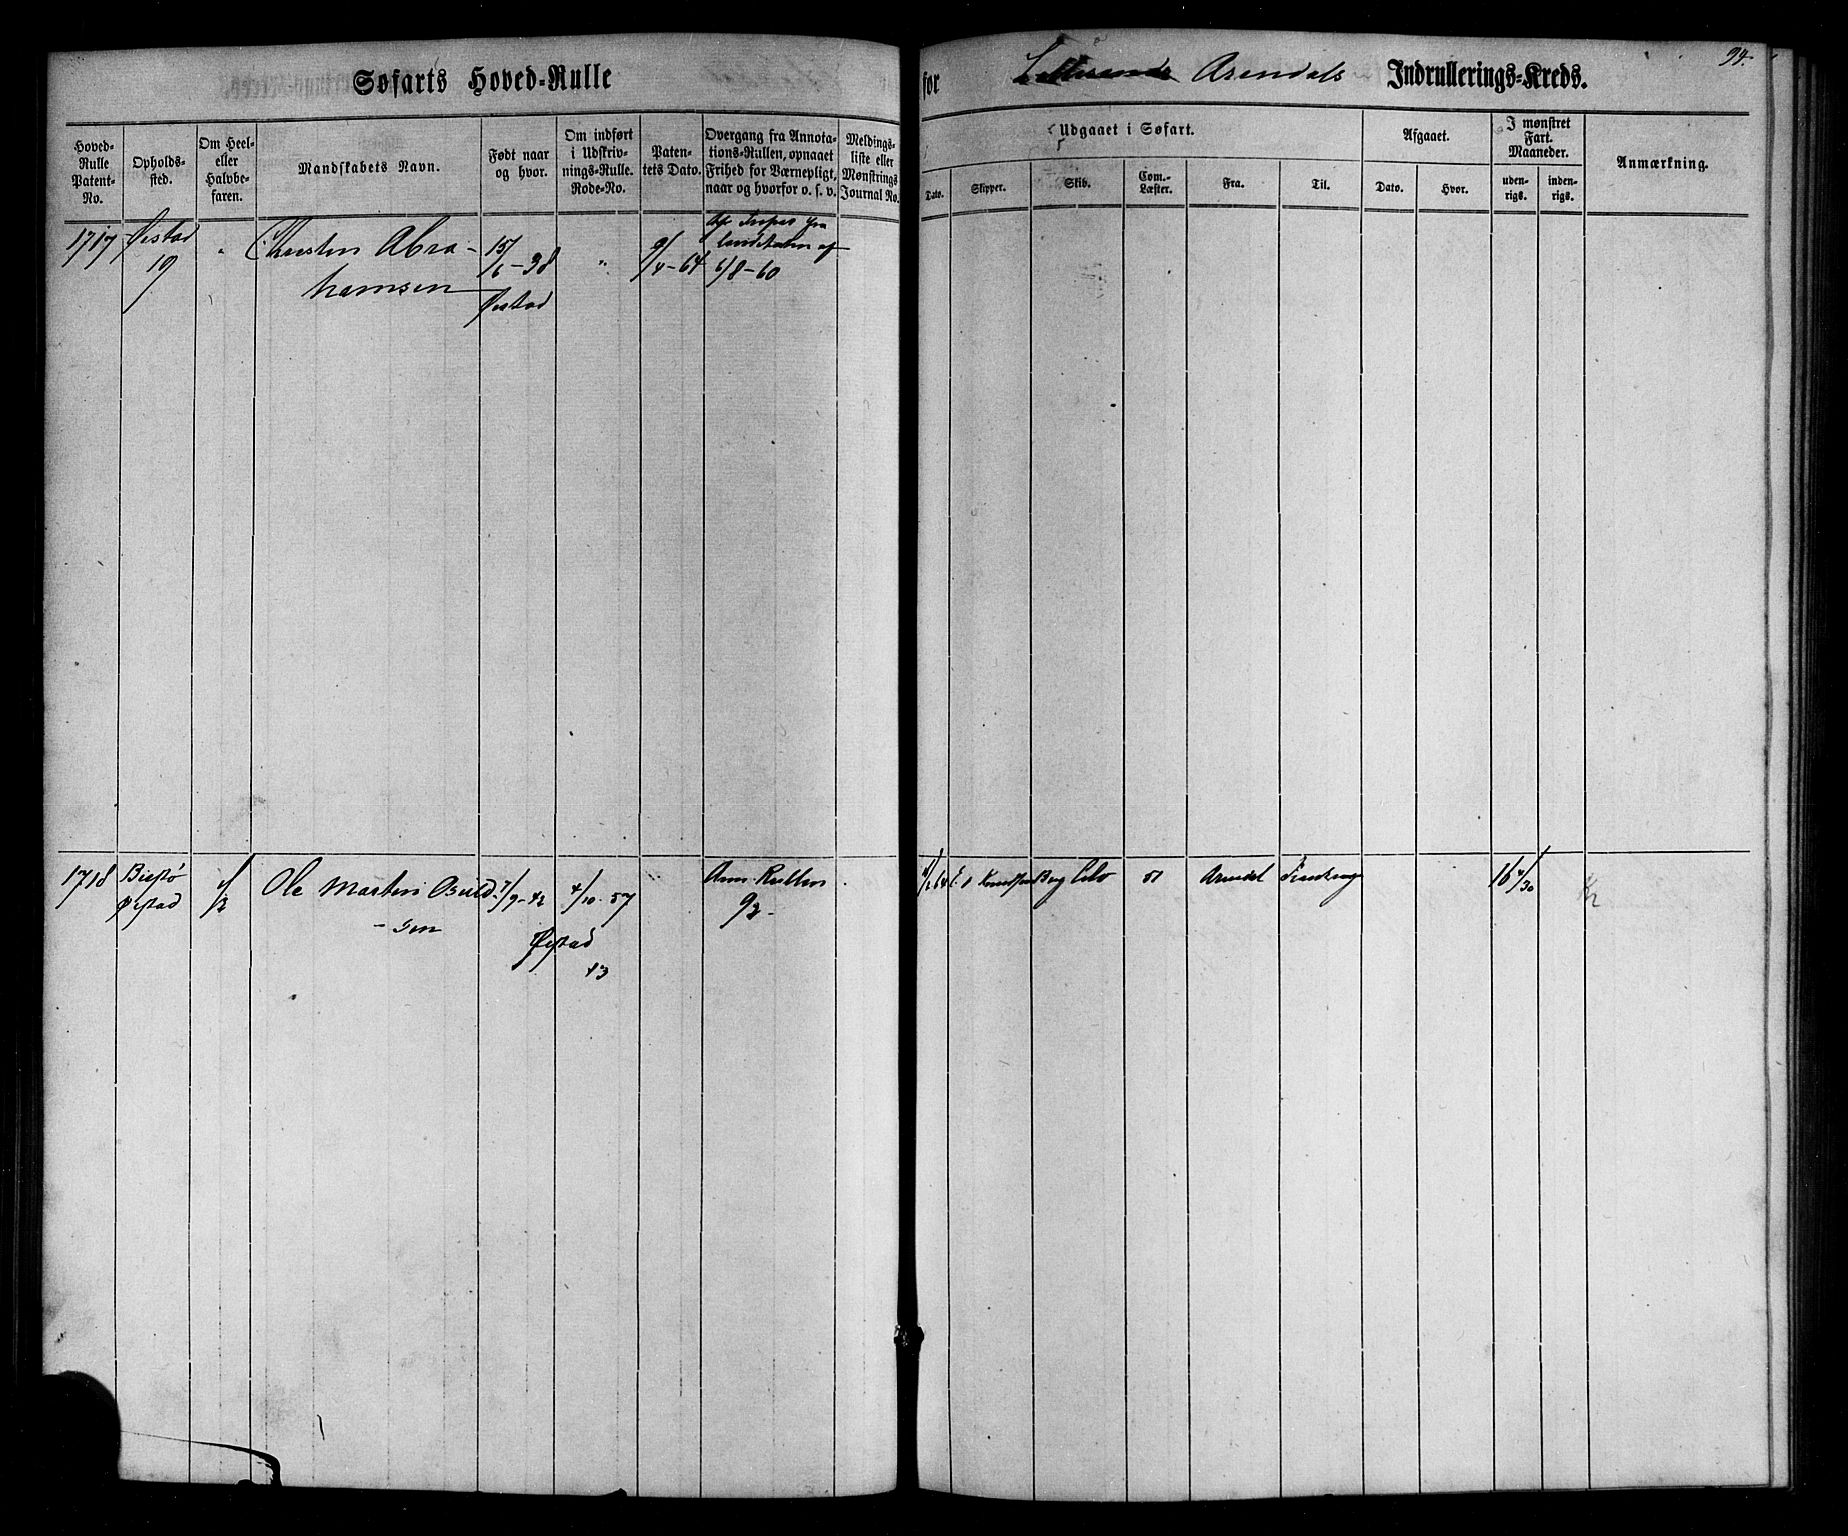 Søfarts Hoved-Rulle
for Arendals Indrullerings-Kreds.
94.
Hoved-Rulle Patent-No.
Opholdssted.
Om Heel- eller Halvbefaren.
Mandskabets Navn.
Født naar og hvor.
Om indført i Udskrivnings-Rulle. Rode-No.
Patentets Dato.
Overgang fra Annotations-Rullen, opnaaet Frihed for Værnepligt, naar og hvorfor o. s. v.
Meldingsliste eller Mønstrings Journal No.
Udgaaet i Søfart.
Dato.
Skipper.
Skib.
Com.-Læster.
Fra.
Til.
Afgaaet.
Dato.
Hvor.
I mønstret Fart. Maaneder.
udenrigs.
indenrigs.
Anmærkning.
1717 Øiestad " Christen Abra- 15/6-38 " 9/4-64
19 hamsen Øiestad 6/8-60
1718 Ole Marten 7/9-42 4/10-57 Ann. Rullen
Øiestad - sen Øistad 92-
43
51 Arendal 16 4/30